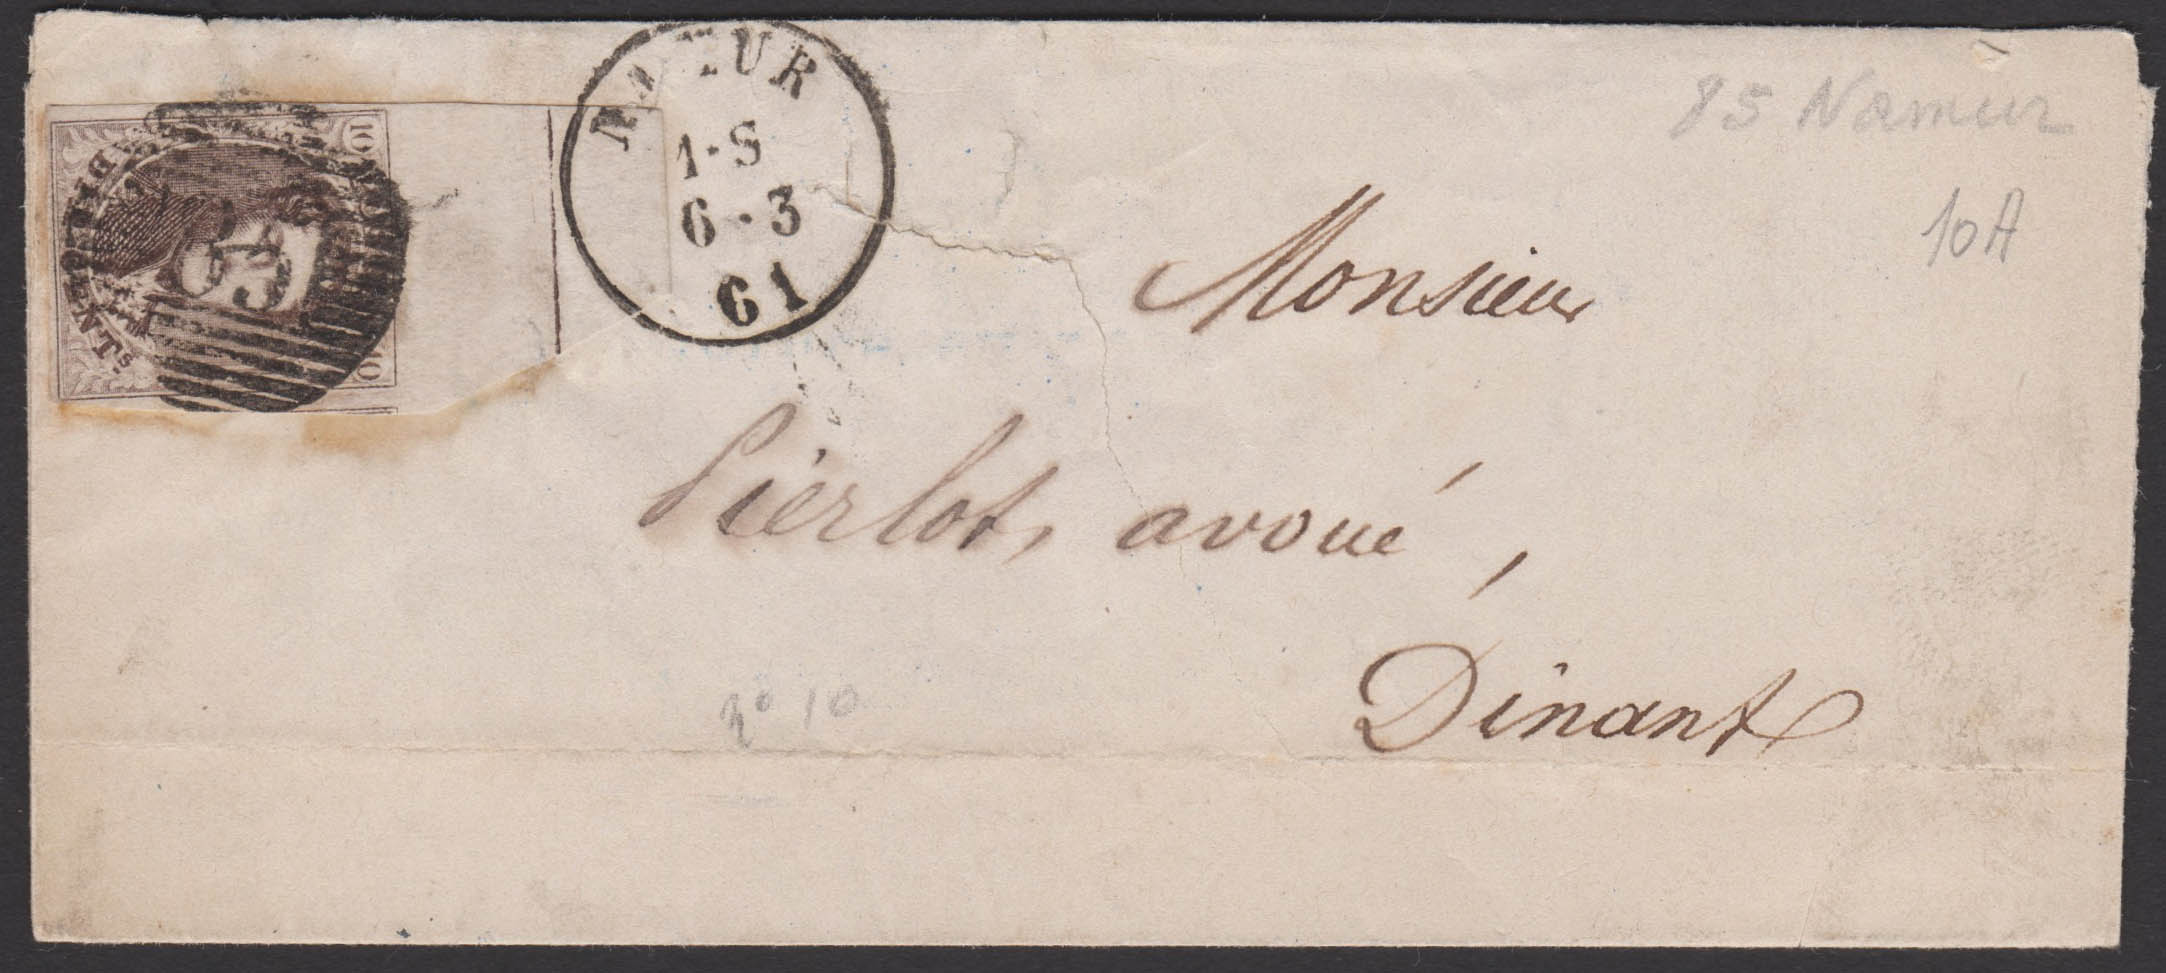 NAMUR
1-S
6-3
61
85 Namur
10A
10
10
85
Monsieur
Pierlot, avoué,
Dinant
n° 10